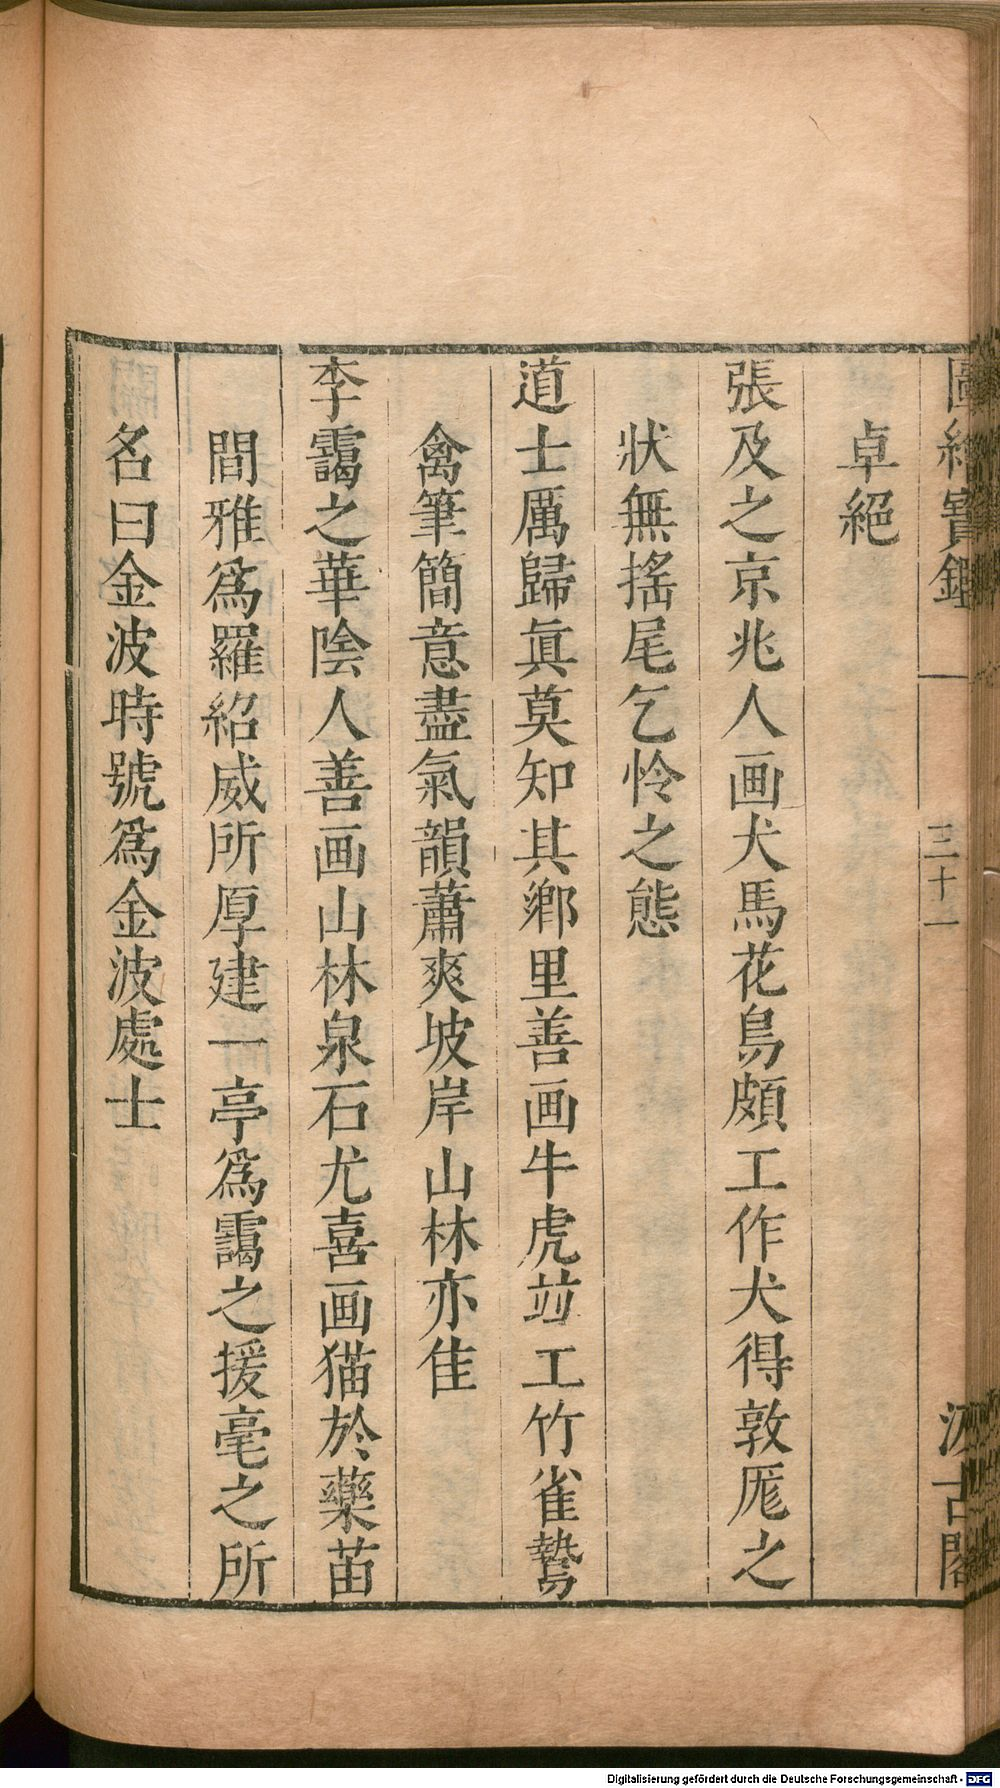 圖繪寶鑑 三十一 汲古閣
卓絕
張及之京兆人画犬馬花鳥頗工作犬得敦厖之
狀無搖尾乞怜之態
道士厲歸眞莫知其鄉里善画牛虎並工竹雀鷙
禽筆簡意盡氣韻蕭爽坡岸山林亦佳
李靄之華陰人善画山林泉石尤喜画猫於藥苗
間雅爲羅紹威所厚建一亭爲靄之援毫之所
名曰金波時號爲金波處士
Digitalisierung gefördert durch die Deutsche Forschungsgemeinschaft - DFG